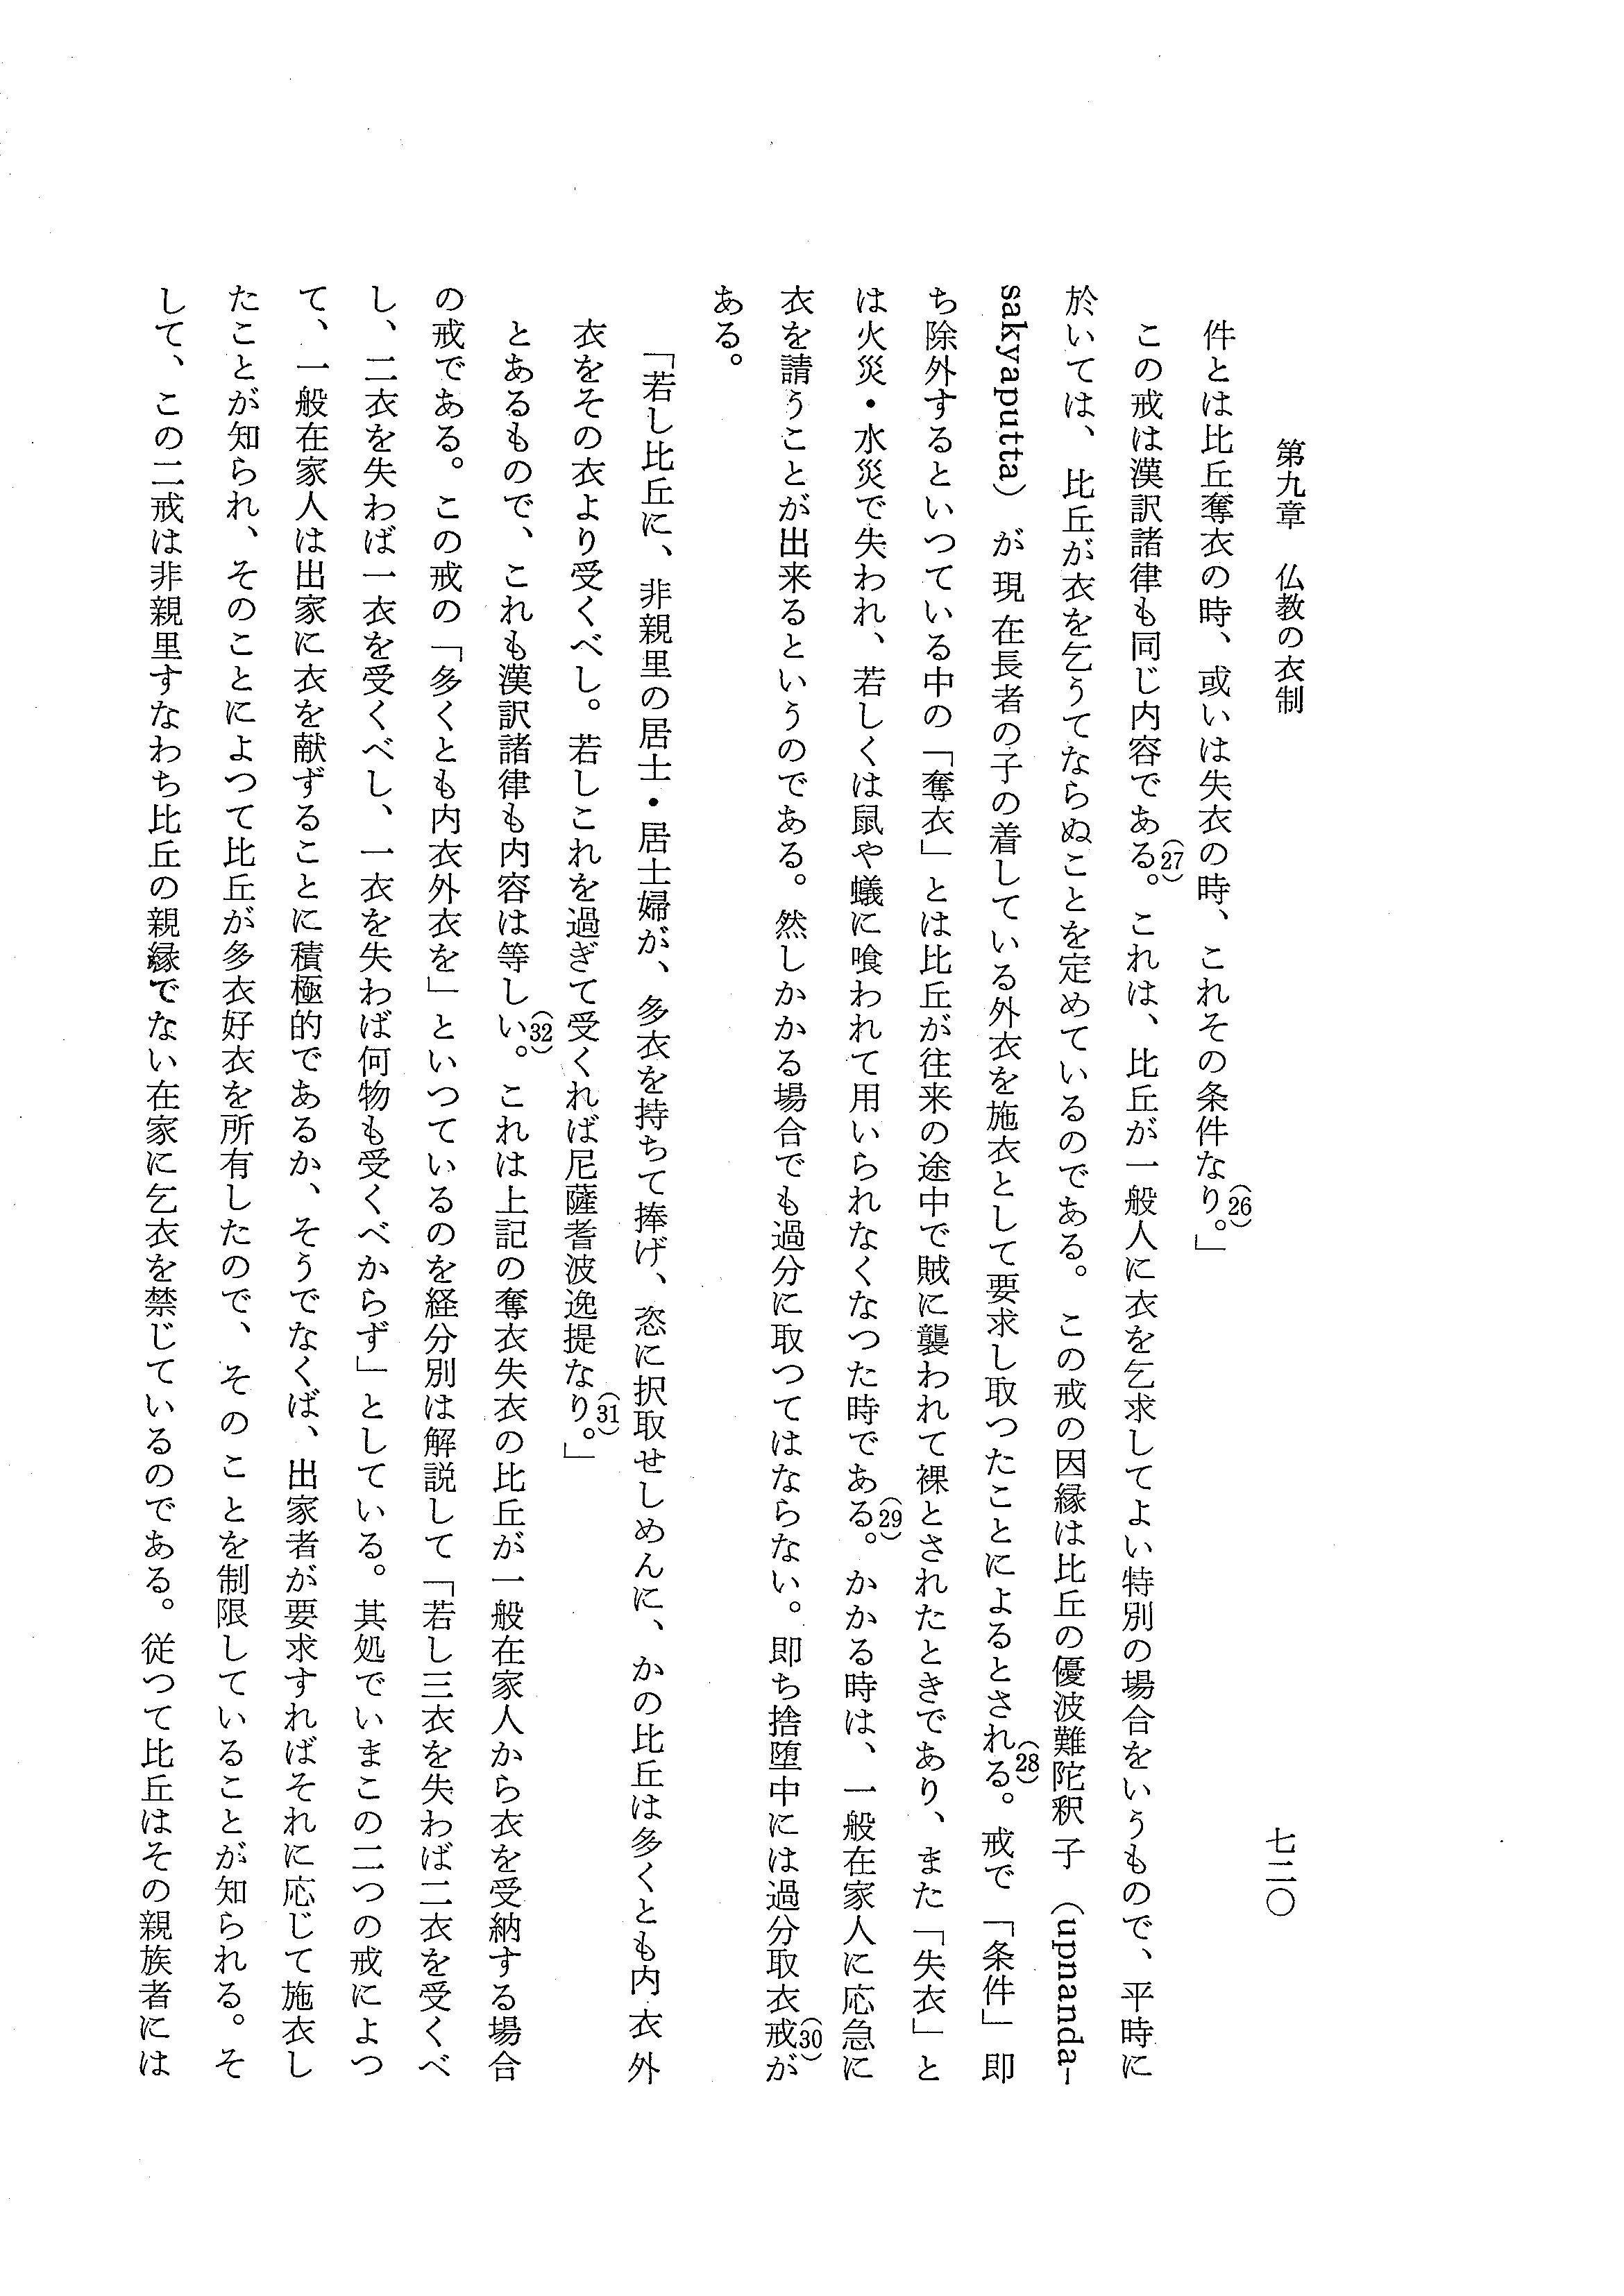 第九章　仏教の衣制
七二〇
件とは比丘奪衣の時、或いは失衣の時、これその条件なり。(26)」
この戒は漢訳諸律も同じ内容である。(27)これは、比丘が一般人に衣を乞求してよい特別の場合をいうもので、平時に
於いては、比丘が衣を乞うてならぬことを定めているのである。この戒の因縁は比丘の優波難陀釈子（upnanda-
sakyaputta）が現在長者の子の着している外衣を施衣として要求し取つたことによるとされる。(28)戒で「条件」即
ち除外するといつている中の「奪衣」とは比丘が往来の途中で賊に襲われて裸とされたときであり、また「失衣」と
は火災・水災で失われ、若しくは鼠や蟻に喰われて用いられなくなつた時である。(29)かかる時は、一般在家人に応急に
衣を請うことが出来るというのである。然しかかる場合でも過分に取つてはならない。即ち捨堕中には過分取衣戒(30)が
ある。
「若し比丘に、非親里の居士・居士婦が、多衣を持ちて捧げ、恣に択取せしめんに、かの比丘は多くとも内衣外
衣をその衣より受くべし。若しこれを過ぎて受くれば尼薩耆波逸提なり。(31)」
とあるもので、これも漢訳諸律も内容は等しい。(32)これは上記の奪衣失衣の比丘が一般在家人から衣を受納する場合
の戒である。この戒の「多くとも内衣外衣を」といつているのを経分別は解説して「若し三衣を失わば二衣を受くべ
し、二衣を失わば一衣を受くべし、一衣を失わば何物も受くべからず」としている。其処でいまこの二つの戒によつ
て、一般在家人は出家に衣を献ずることに積極的であるか、そうでなくば、出家者が要求すればそれに応じて施衣し
たことが知られ、そのことによつて比丘が多衣好衣を所有したので、そのことを制限していることが知られる。そ
して、この二戒は非親里すなわち比丘の親縁でない在家に乞衣を禁じているのである。従つて比丘はその親族者には